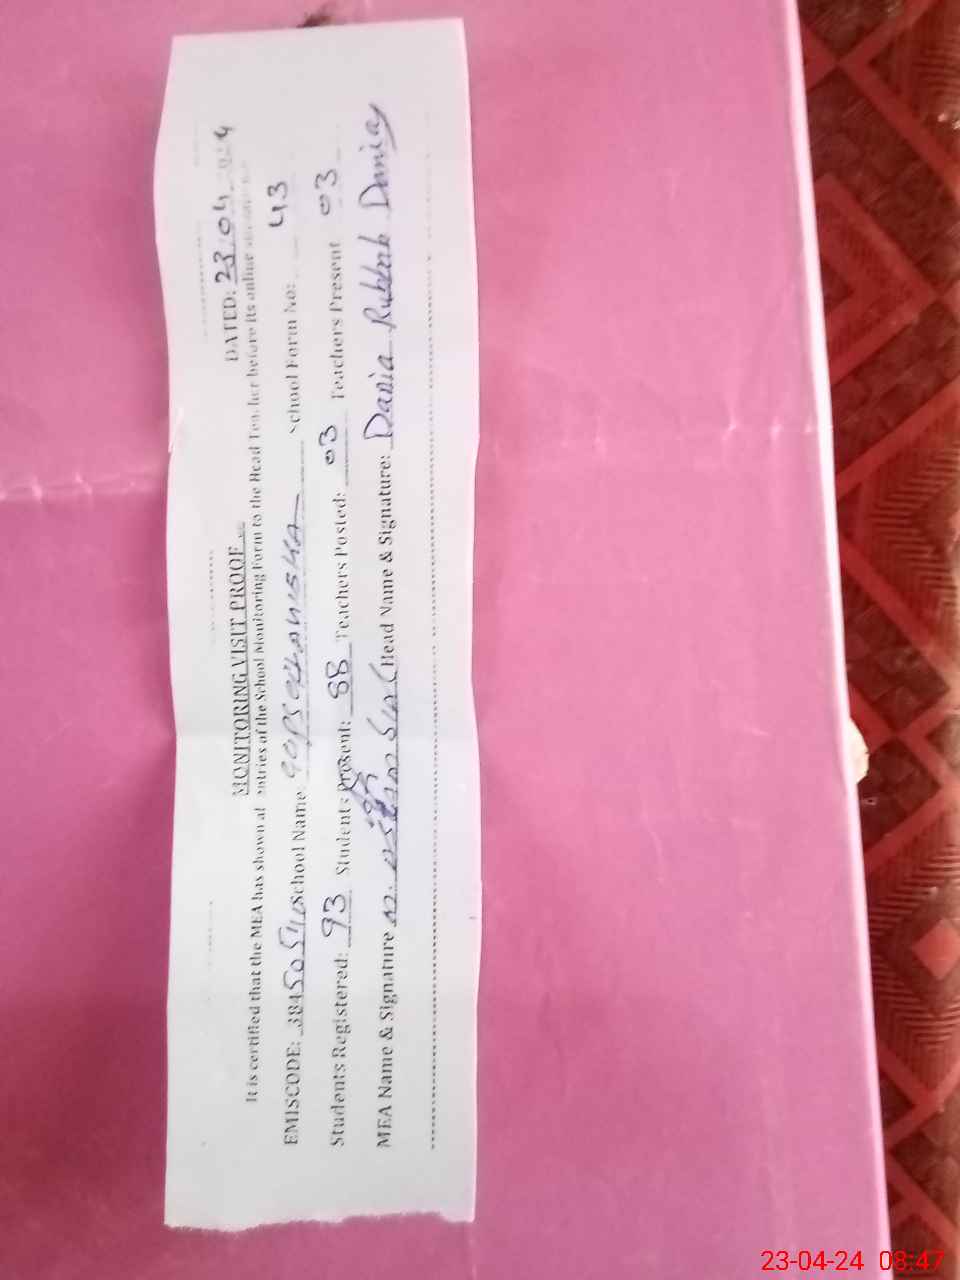 MONITORING VISIT PROOF DATED: 23.04.2024
It is certified that the MEA has shown al entries of the School Monitoring Form to the Head Teacher before its online
EMISCODE: School Name: School Form No: 43
Students Registered: 93 Students present: 88 Teachers Posted: 03 Teachers Present 03
MEA Name & Signature Head Name & Signature: Dania Rubbab Dania
23-04-24 08:47